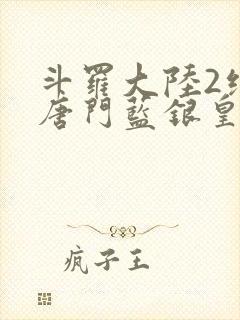 斗羅大陸2
唐門藍銀皇
疯子王